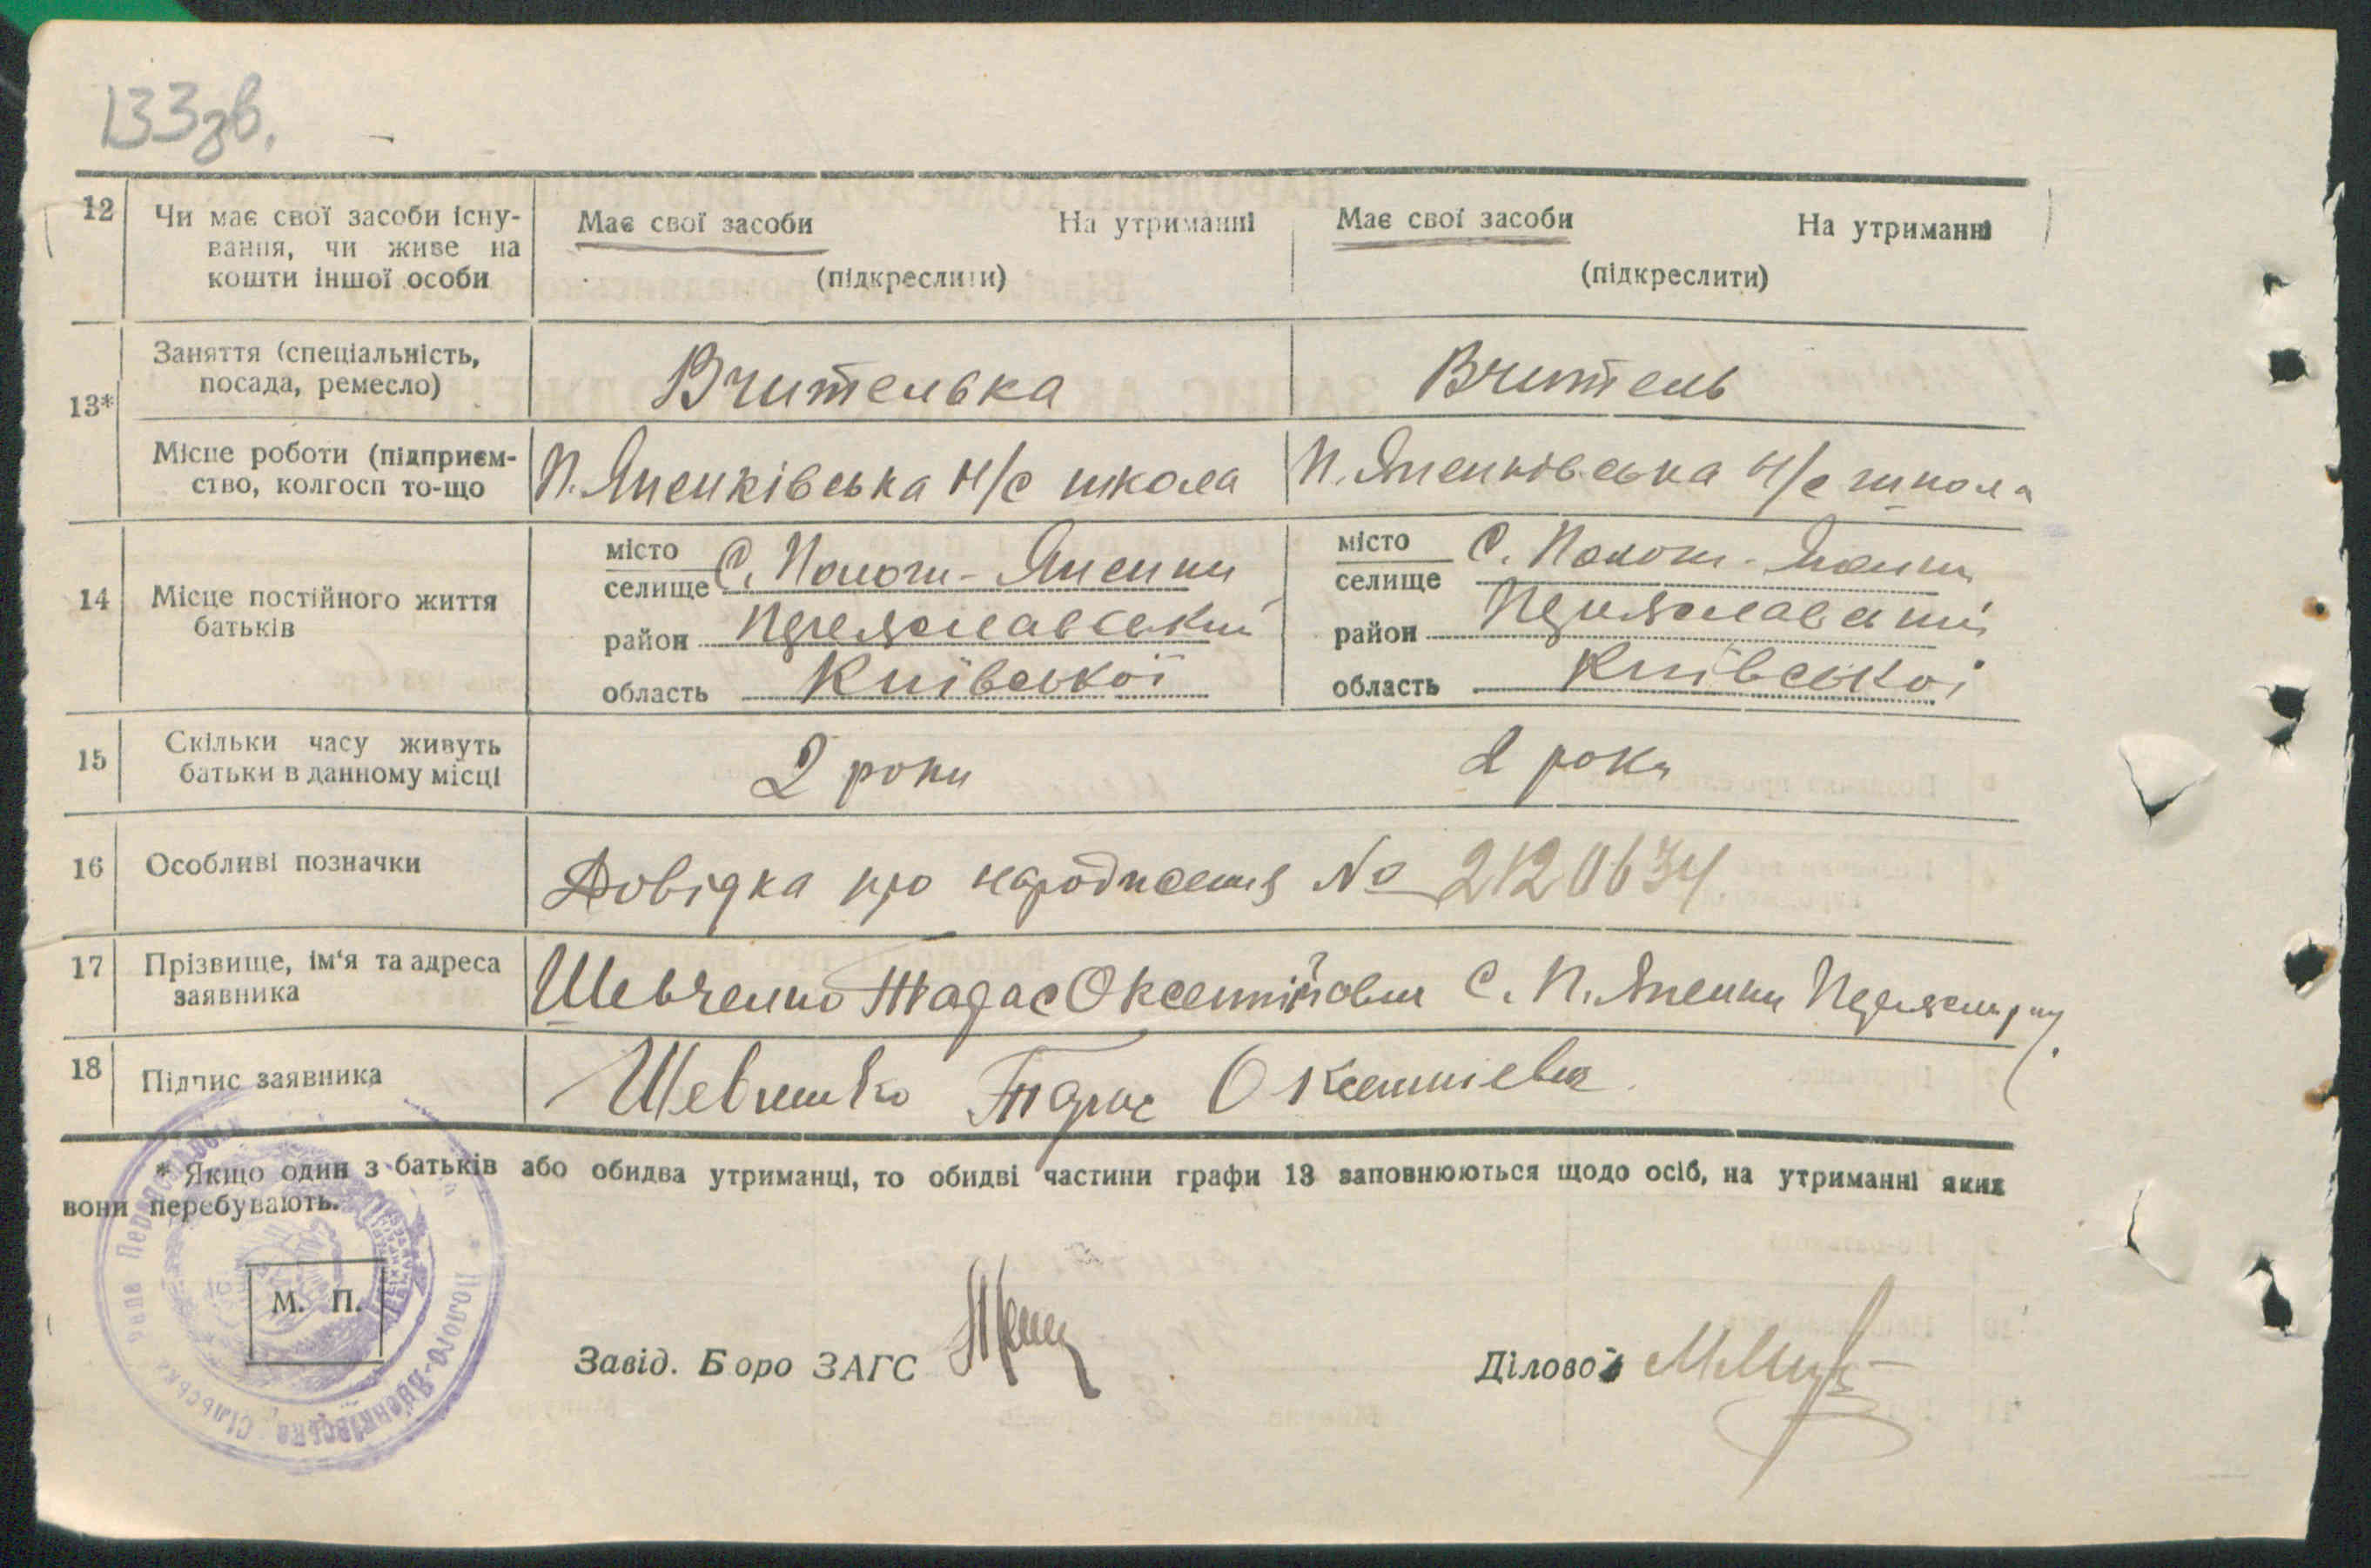 133зв.
12 Чи має свої засоби існу- Має свої засоби На утриманні Має свої засоби На утриманні
вання, чи живе на
кошти іншої особи (підкреслити) (підкреслити)
Заняття (спеціальність,
посада, ремесло) Вчителька Вчитель
13*
Місце роботи (підприєм- П. Яненківська Н/с школа П. Яненківська Н/с школа
ство, колгосп то-що
місто С. Пологи-Яненки місто С. Пологи-Яненки
селище селище
14 Місце постійного життя
батьків
район Переяславський район Переяславський
область Київської область Київської
15 Скільки часу живуть
батьки в данному місці 2 роки 2 роки
16 Особливі позначки Довідка про народження No 2120634
17 Прізвище, ім'я та адреса Шевченко Тарас Оксентійович С. П. Яненки
заявника
18 Підпис заявника Шевченко Тарас Оксентіевич
* Якщо один з батьків або обидва утриманці, то обидві частини графи 13 заповнюються щодо осіб, на утриманні яких
вони перебувають.
Полого-Яненківська Сільська Рада
М. П.
Завід. Бюро ЗАГС
Діловод